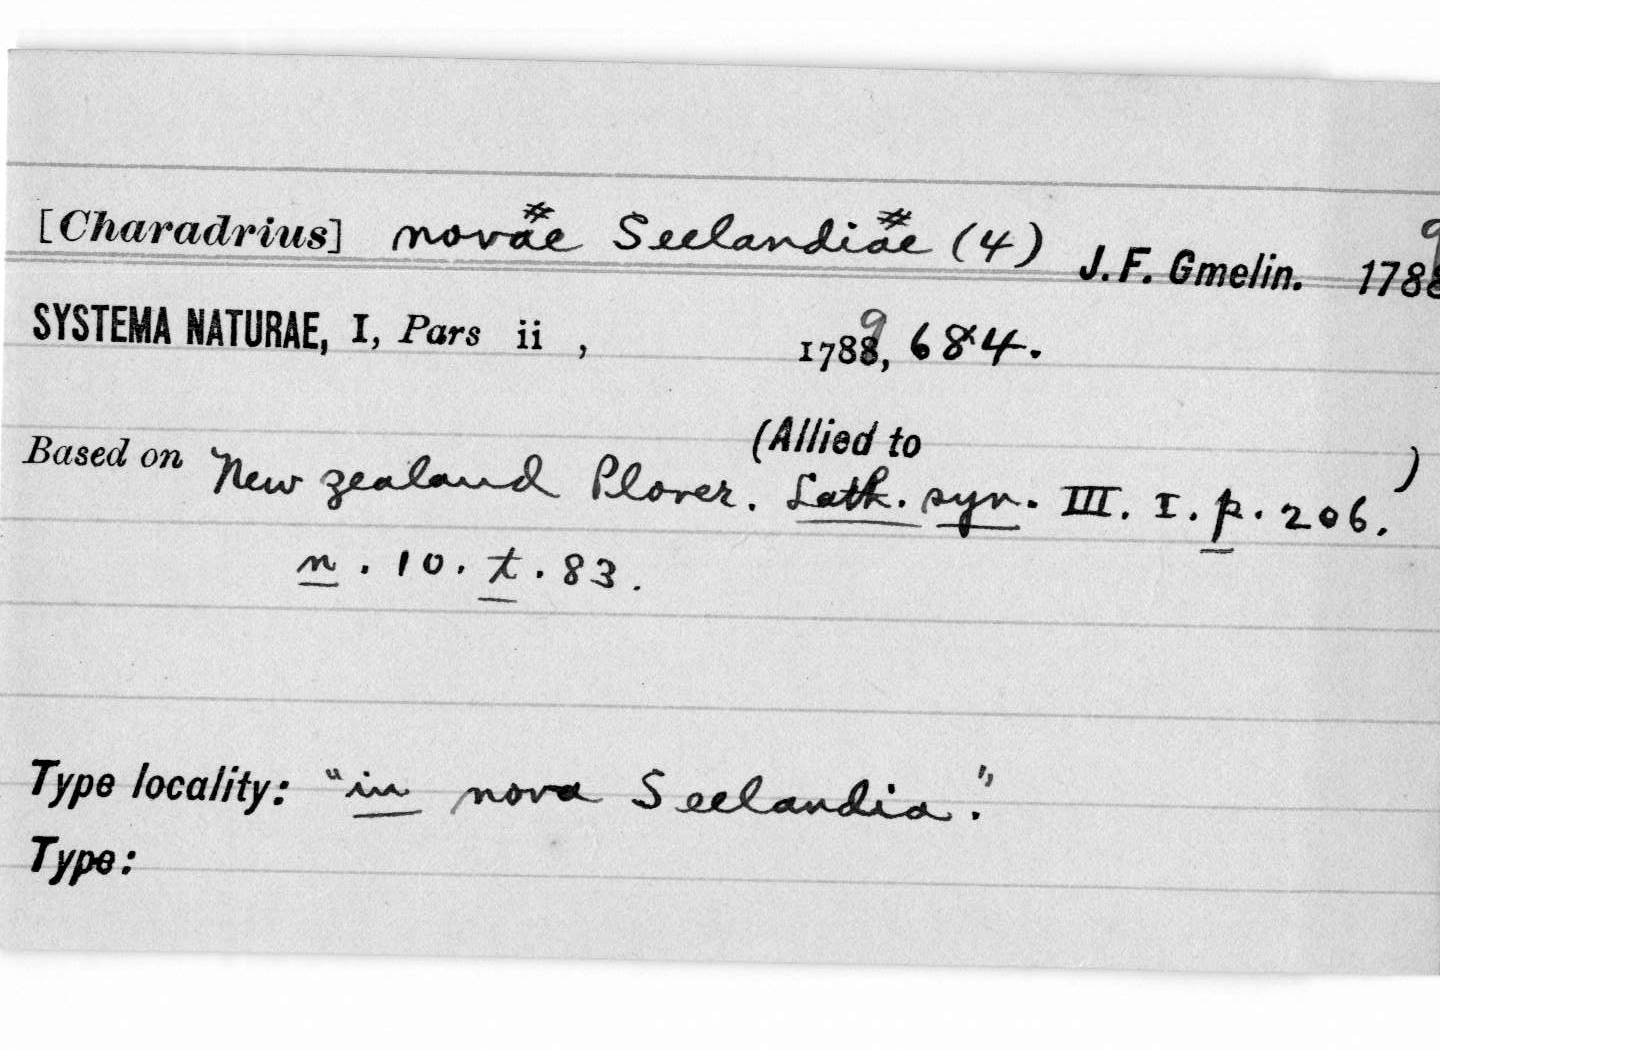 [Charadrius] novae Seelandiae (4) J. F. Gmelin. 1788 9
SYSTEMA NATURAE, I, Pars ii , 1788 9, 684.
(Allied to )
Based on New zealand Plover. Lath. syn. III. I. p. 206.
n. 10. t. 83.
Type locality: "in nova Seelandia."
Type: